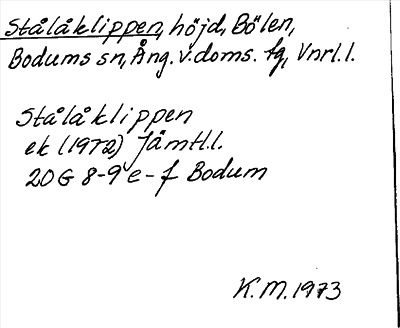 Stålåklippen, höjd, Bölen,
Bodums sn, Ång. v. doms. fg, Vnrl. l.
Stålåklippen
ek (1972) Jämtl. l.
20G 8-9 e-f Bodum
K.M. 1973